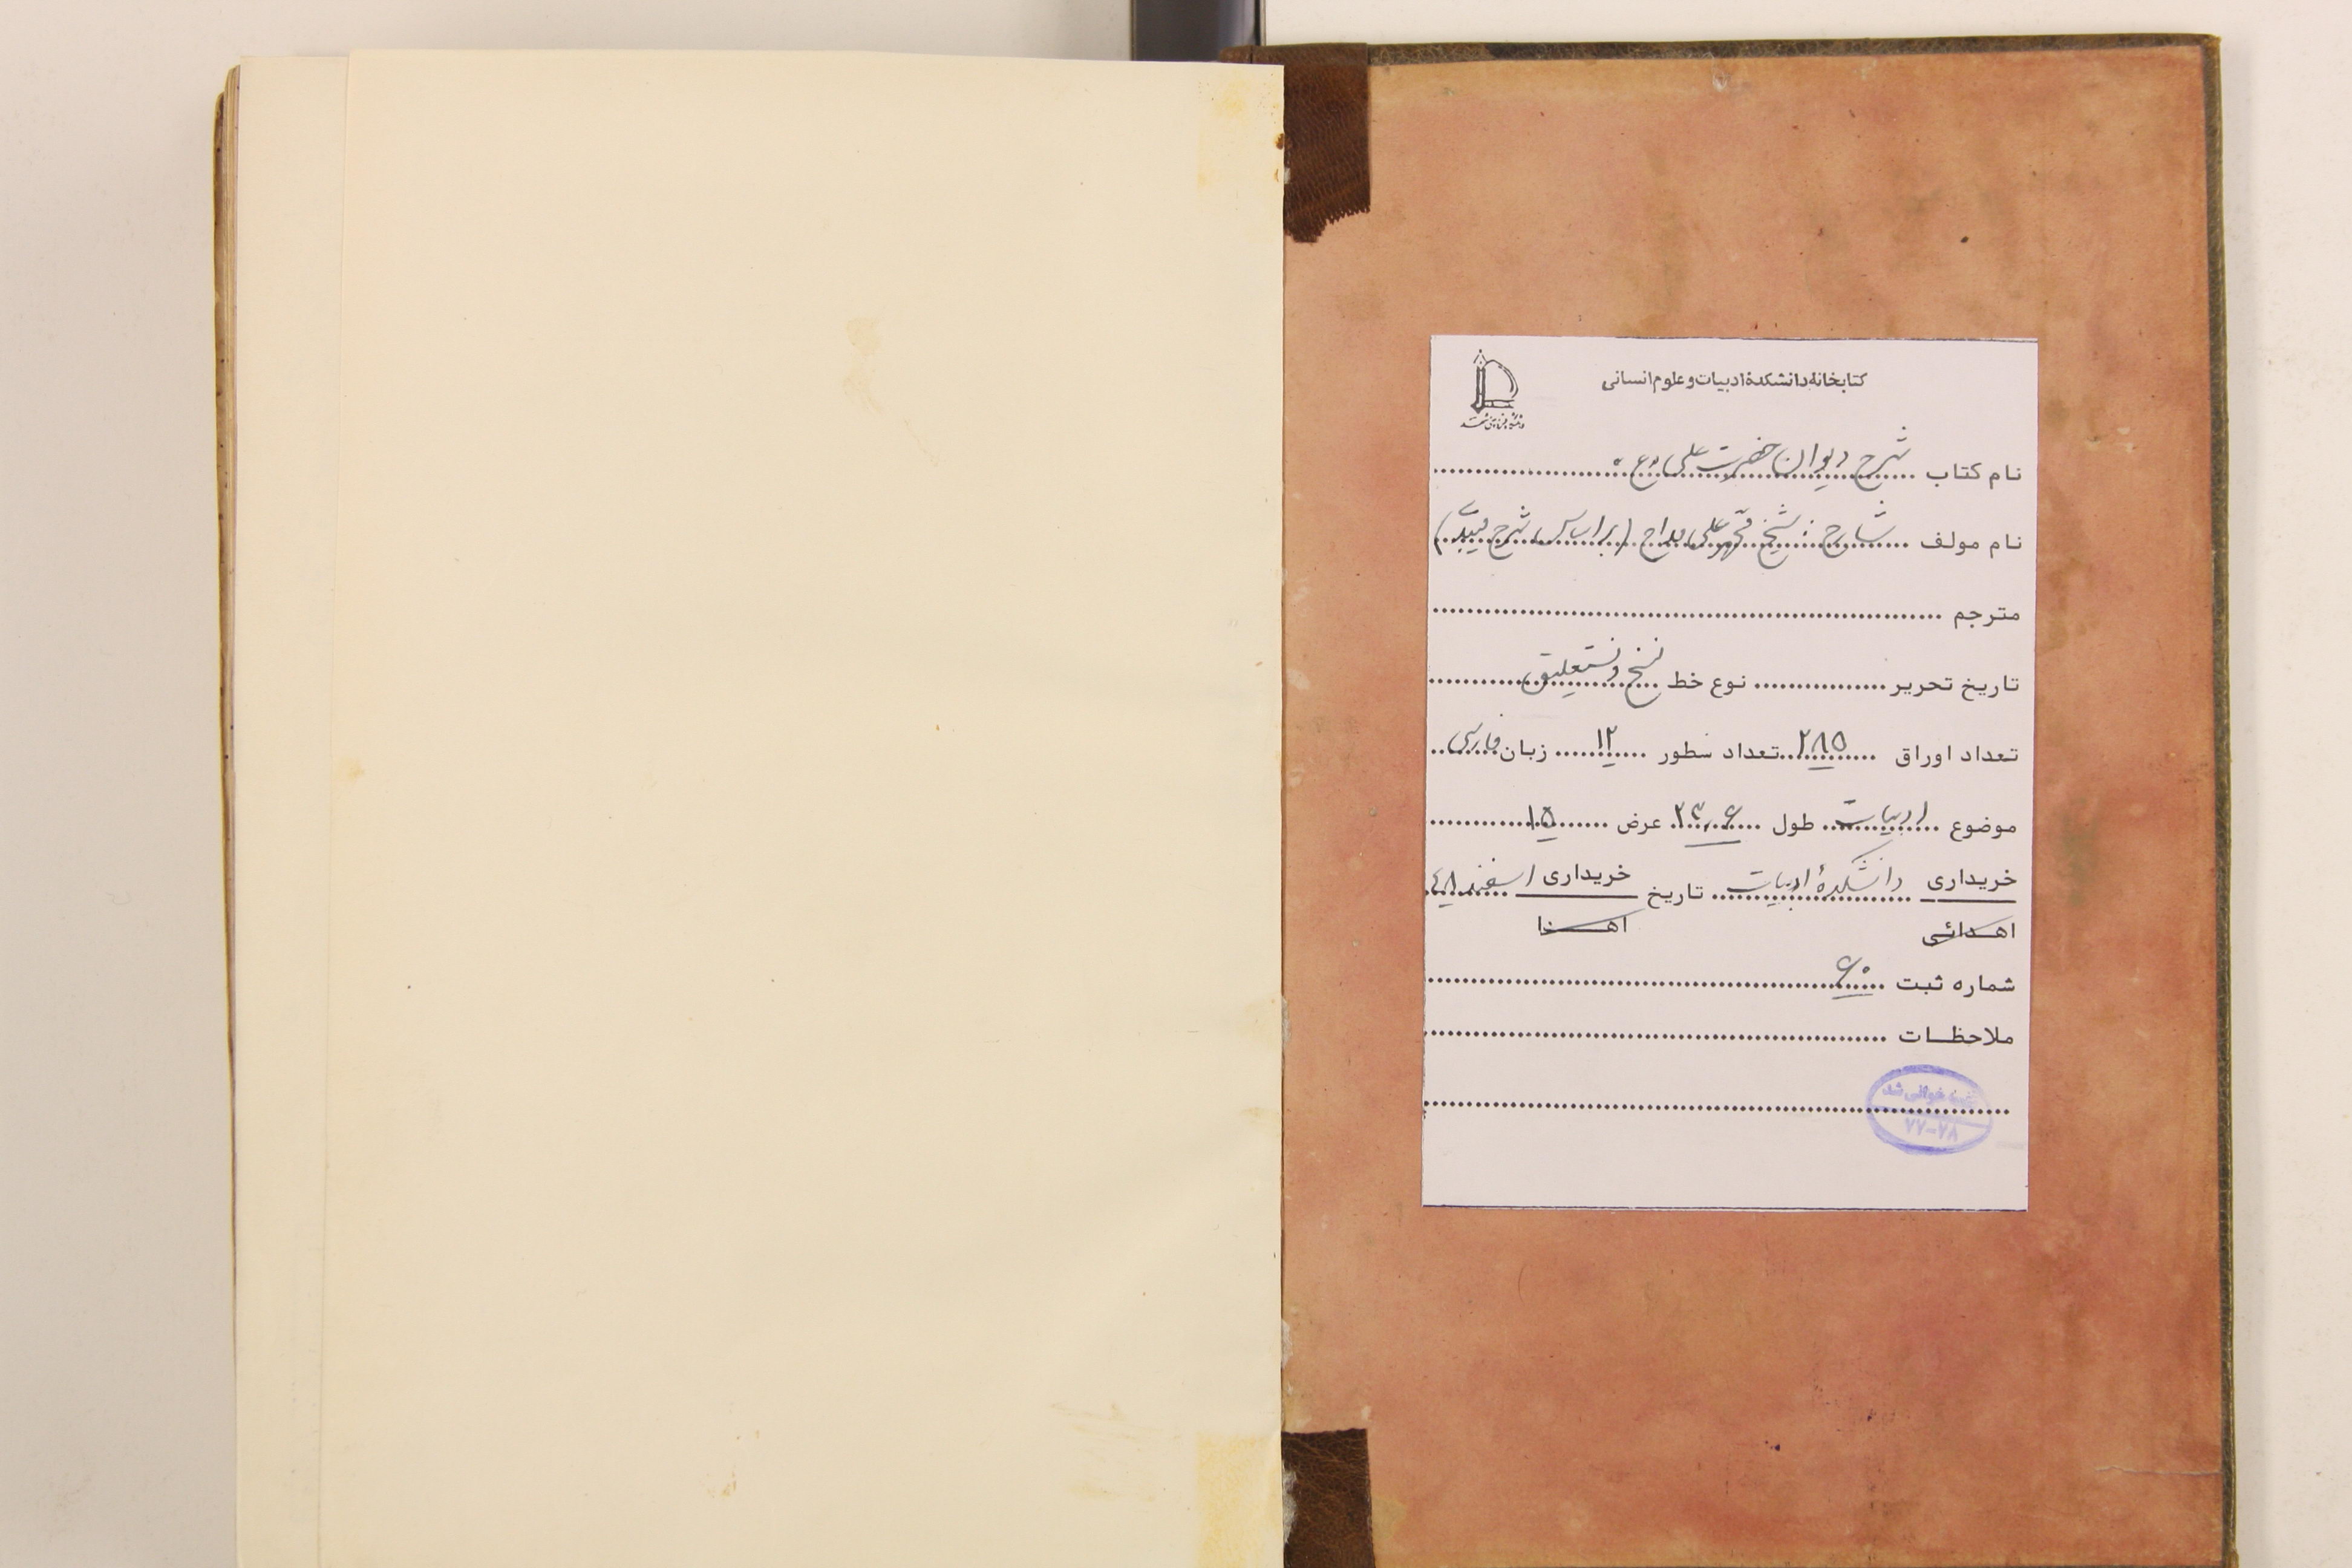 کتابخانه دانشکدهٔ ادبیات و علوم انسانی
نام کتاب شرح دیوان حضرت علی «ع»
نام مولف شارح : شیخ محمدعلی مداح (براساس شرح میبدی)
مترجم
تاریخ تحریر نوع خط نسخ و نستعلیق
تعداد اوراق ۲۸۵ تعداد سطور ۱۲ زبان فارسی
موضوع ادبیات طول ۲۳٫۶ عرض ۱۵
خریداری دانشکدهٔ ادبیات تاریخ خریداری اسفند ۴۸
اهدائی اهدا
شماره ثبت ۶۰
ملاحظات
خوانی شد
۷۷-۷۸